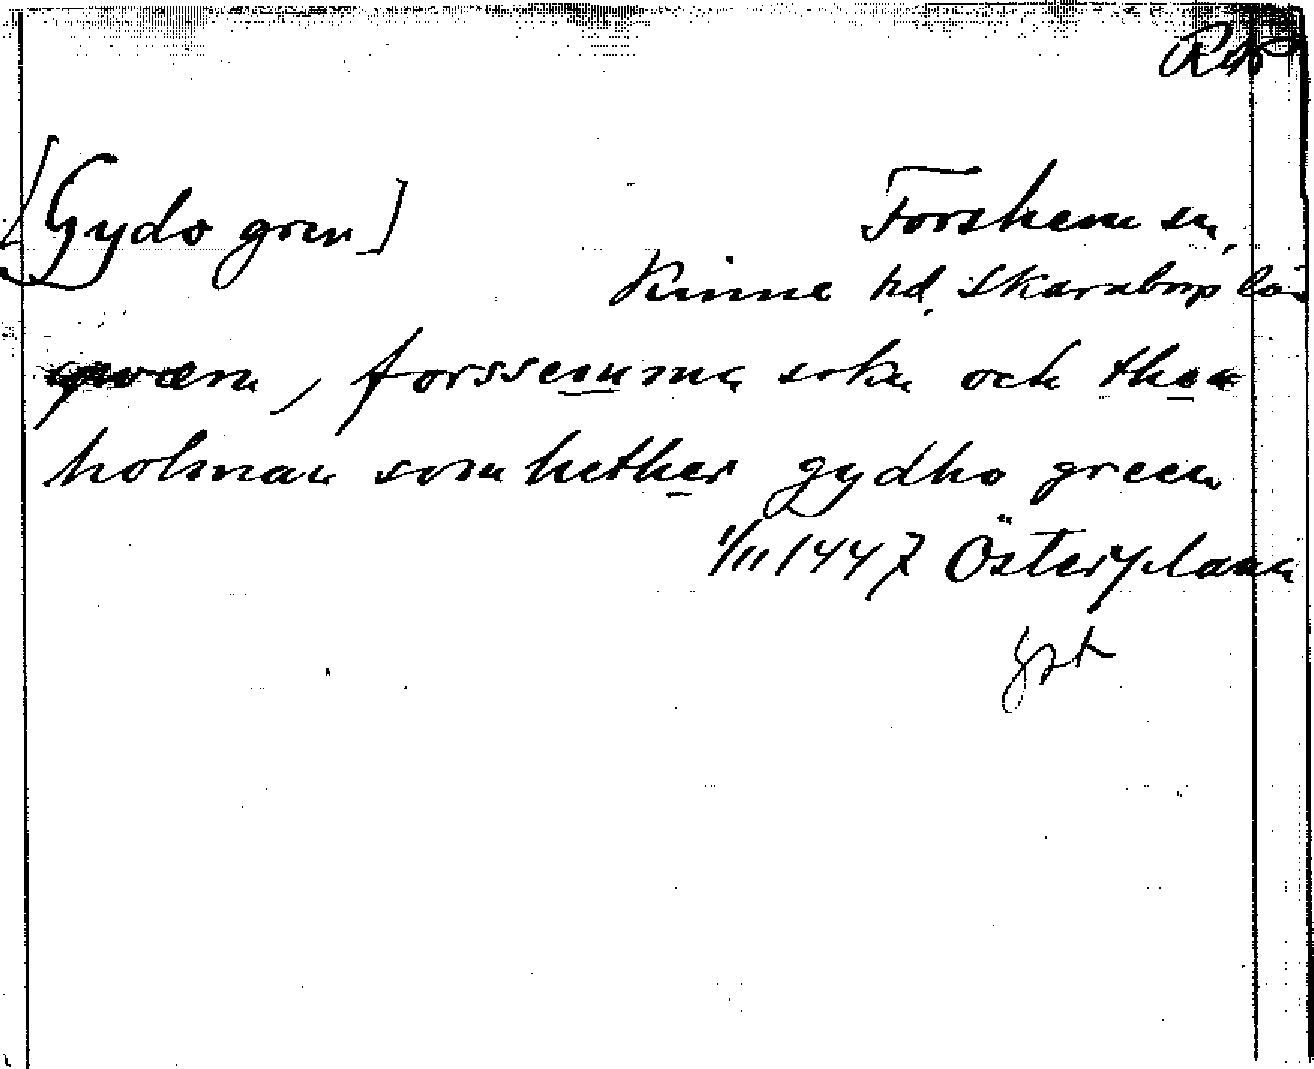 RAP
[Gydo gren]
Forshem sn,
Kinne hd, Skaraborgs län
qwærn, forssemma sokn och then
holman som hether gydho green
1/11 1447 Österplana